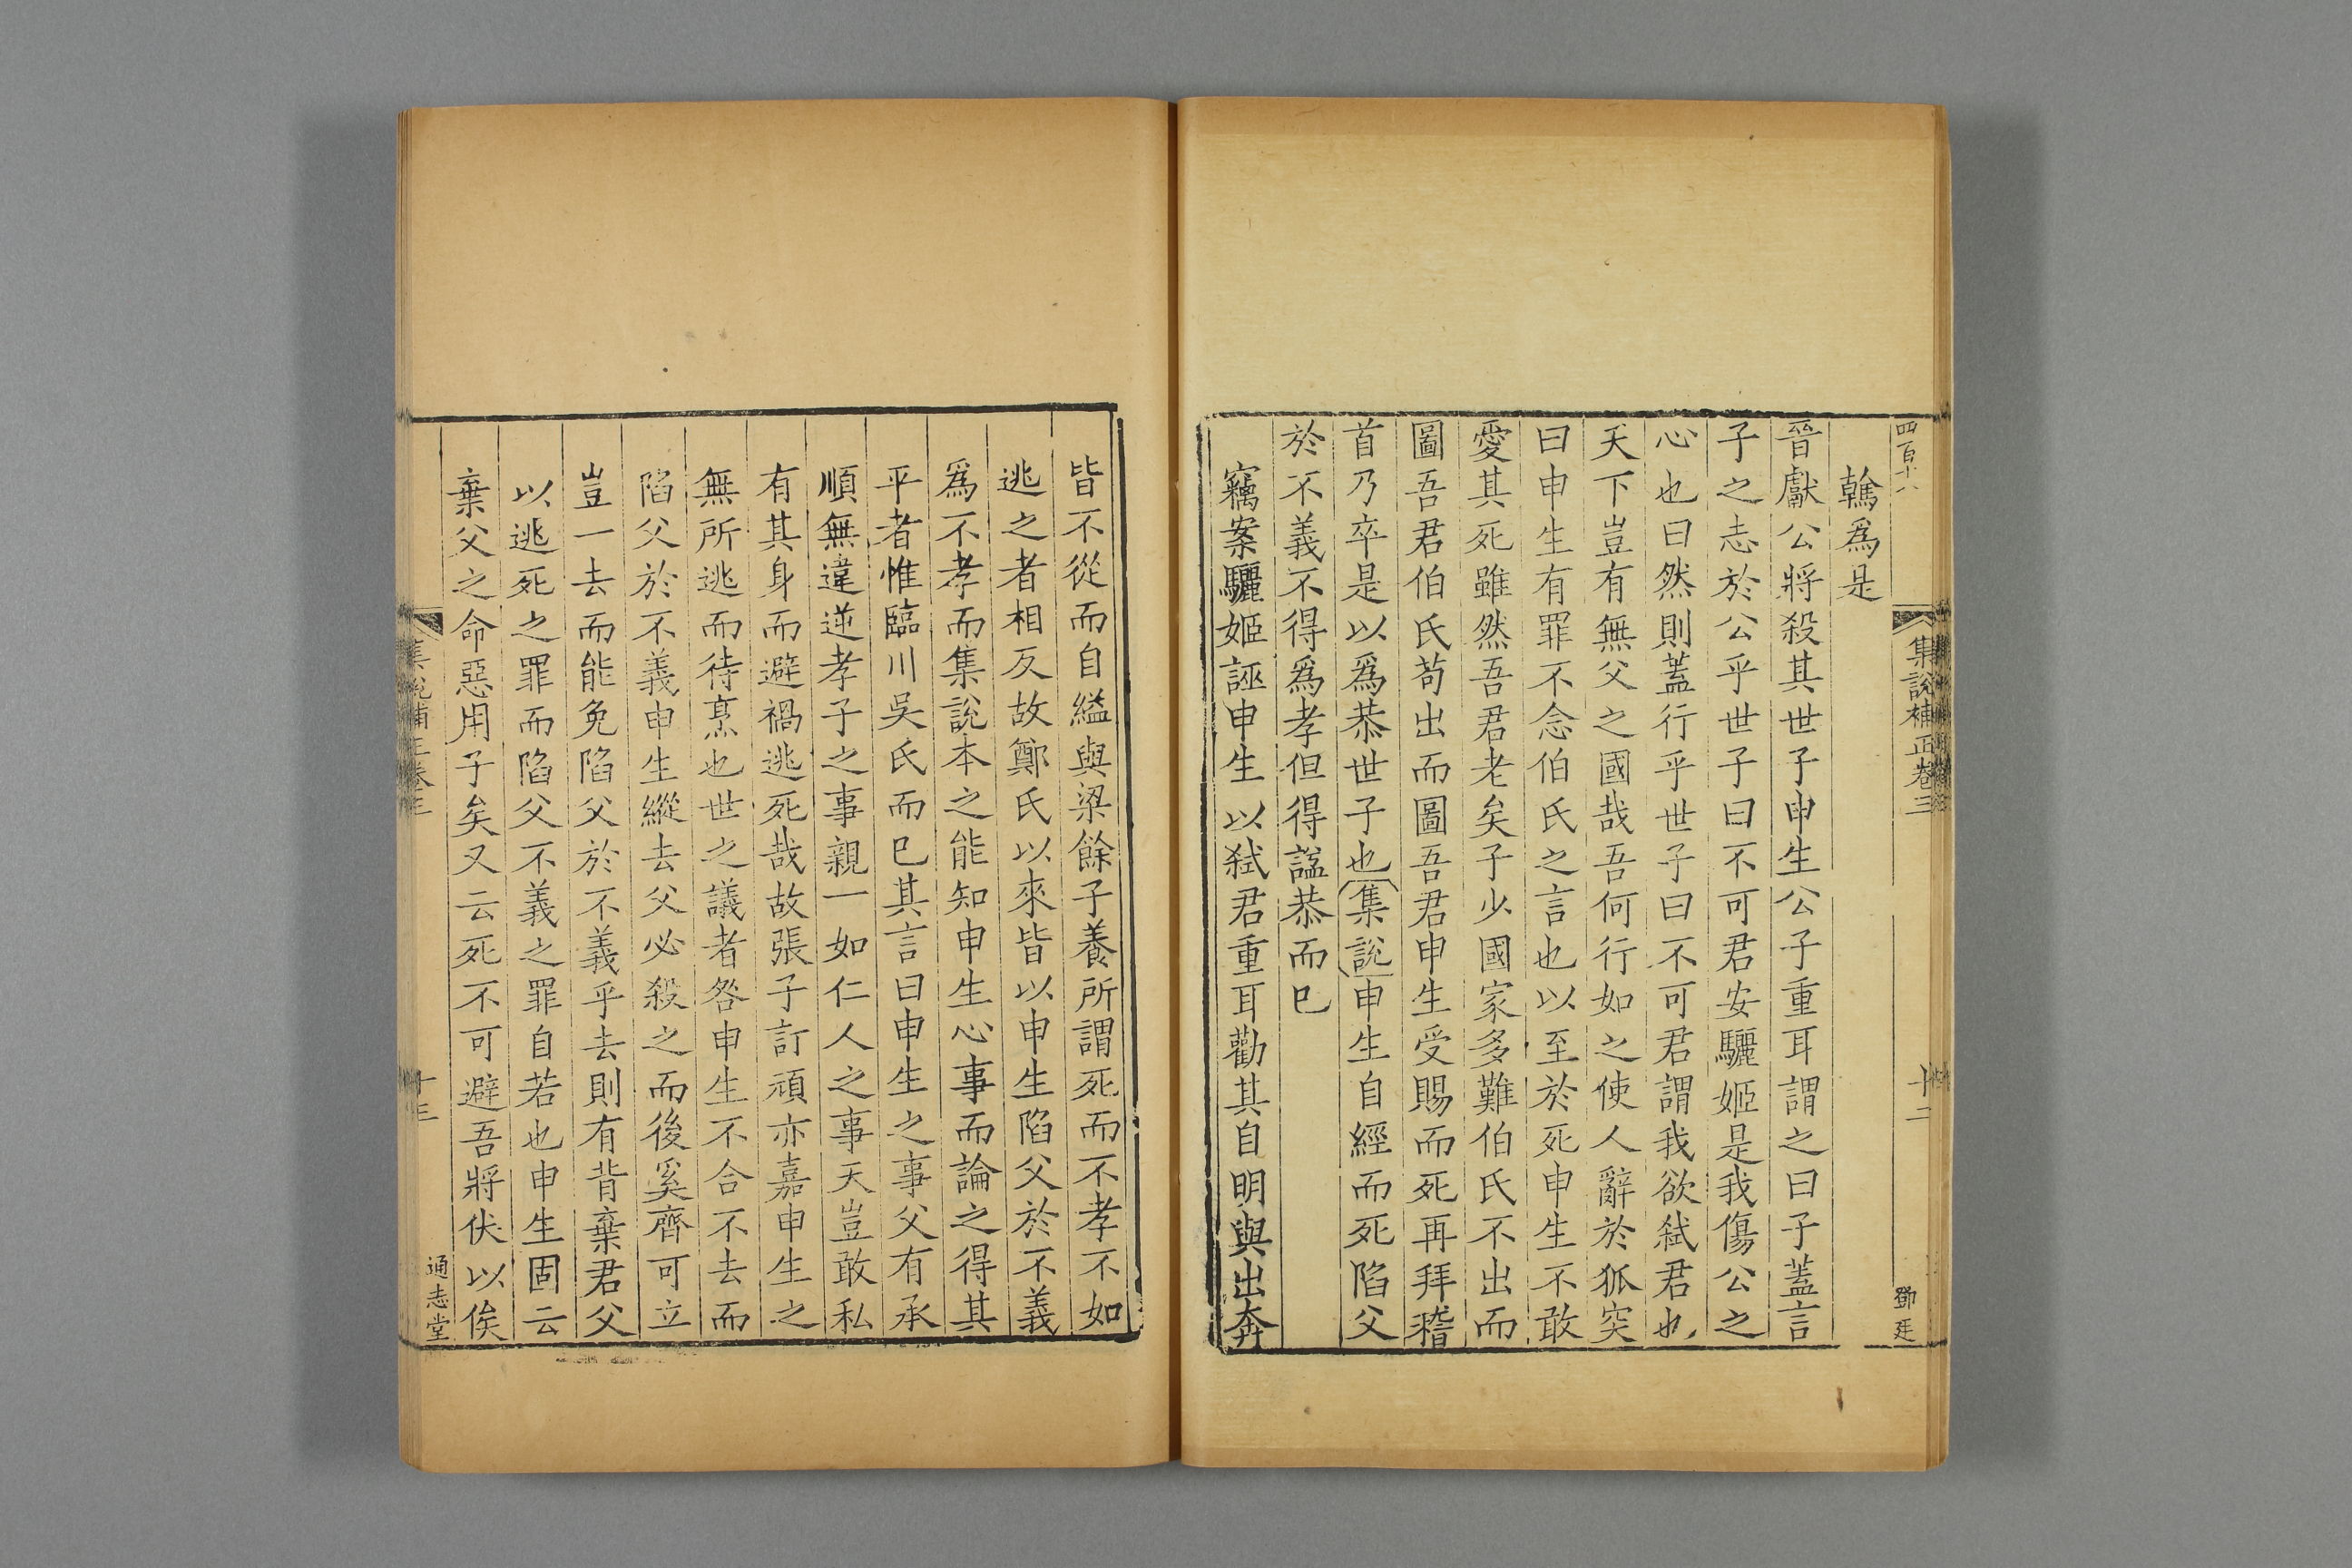 四百十八
集說補正卷三
十二
鄧廷
鷮爲是
晉獻公將殺其世子申生公子重耳謂之曰子蓋言
子之志於公乎世子曰不可君安驪姬是我傷公之
心也曰然則蓋行乎世子曰不可君謂我欲弒君也
天下豈有無父之國哉吾何行如之使人辭於狐突
曰申生有罪不念伯氏之言也以至於死申生不敢
愛其死雖然吾君老矣子少國家多難伯氏不出而
圖吾君伯氏苟出而圖吾君申生受賜而死再拜稽
首乃卒是以爲恭世子也集說申生自經而死陷父
於不義不得爲孝但得諡恭而已
竊案驪姬誣申生以弒君重耳勸其自明與出奔
皆不從而自縊與梁餘子養所謂死而不孝不如
逃之者相反故鄭氏以來皆以申生陷父於不義
爲不孝而集說本之能知申生心事而論之得其
平者惟臨川吳氏而已其言曰申生之事父有承
順無違逆孝子之事親一如仁人之事天豈敢私
有其身而避禍逃死哉故張子訂頑亦嘉申生之
無所逃而待烹也世之議者咎申生不合不去而
陷父於不義申生縱去父必殺之而後奚齊可立
豈一去而能免陷父於不義乎去則有背棄君父
以逃死之罪而陷父不義之罪自若也申生固云
棄父之命惡用子矣又云死不可避吾將伏以俟
集說補正卷三
十三
通志堂